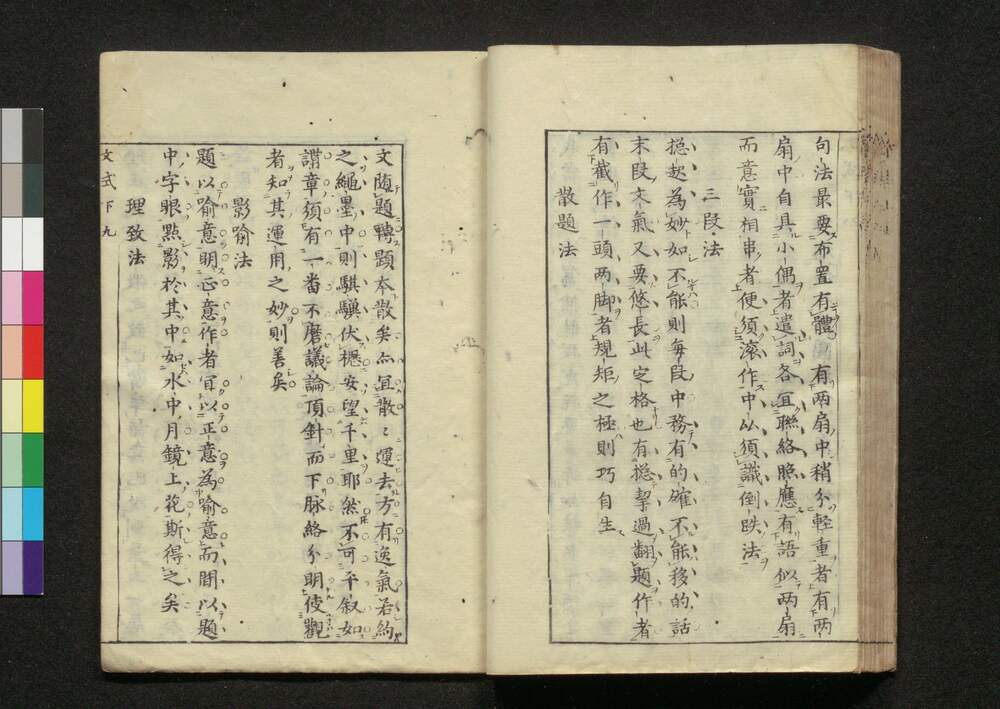 句法最要布置有體有两扇中稍分輕重者有两
扇中自具小偶者遣詞各宜聯絡照應有語似两扇
而意實相串者便須滚作中以須識倒跌法
三段法
摠起為妙如不能則每段中務有的確不能移的話
末段文氣又要悠長此定格也有摠挈過翻題作者
有截作一頭两脚者規矩之極則巧自生
散題法
文随題轉題本散矣亦宜散〻運去方有逸氣若約
之繩墨中則騏驥伏櫪安望千里耶然不可平叙如
謂章須有一番不磨議論頂針而下脉絡分明使觀
者知其運用之妙則善矣
影喻法
題以喻意明正意作者宜以正意為喻意而間以題
中字眼㸃影於其中如水中月鏡上花斯得之矣
理致法
文式下九